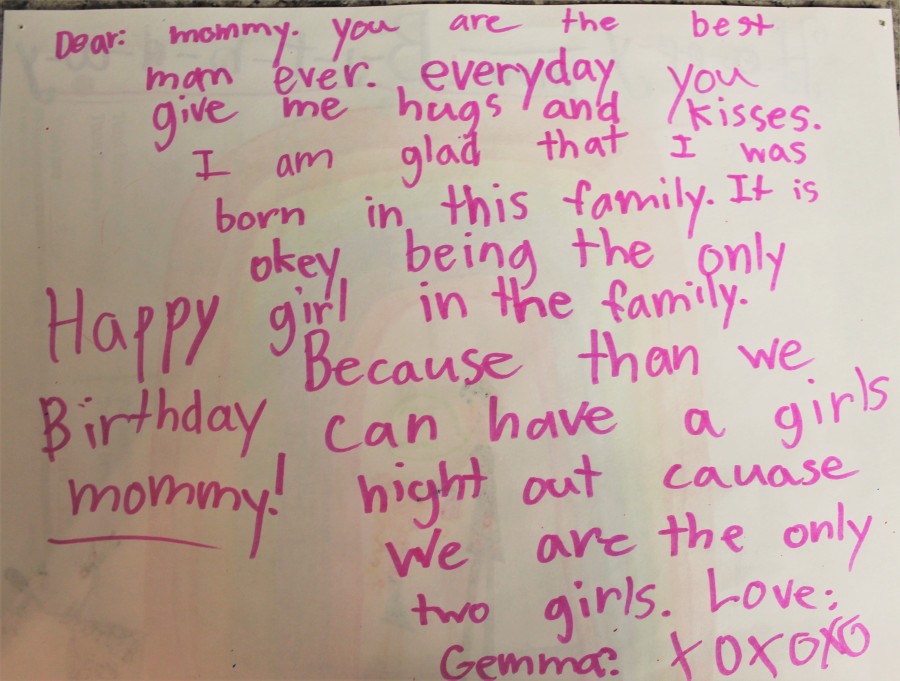 Dear: mommy. you are the best
mom ever. everyday you
give me hugs and kisses.
I am glad that I was
born in this family. It is
okey being the only
girl in the family.
Because than we
can have a girls
night out cauase
we are the only
two girls. Love:
Gemma: XOXOXO
Happy
Birthday
mommy!